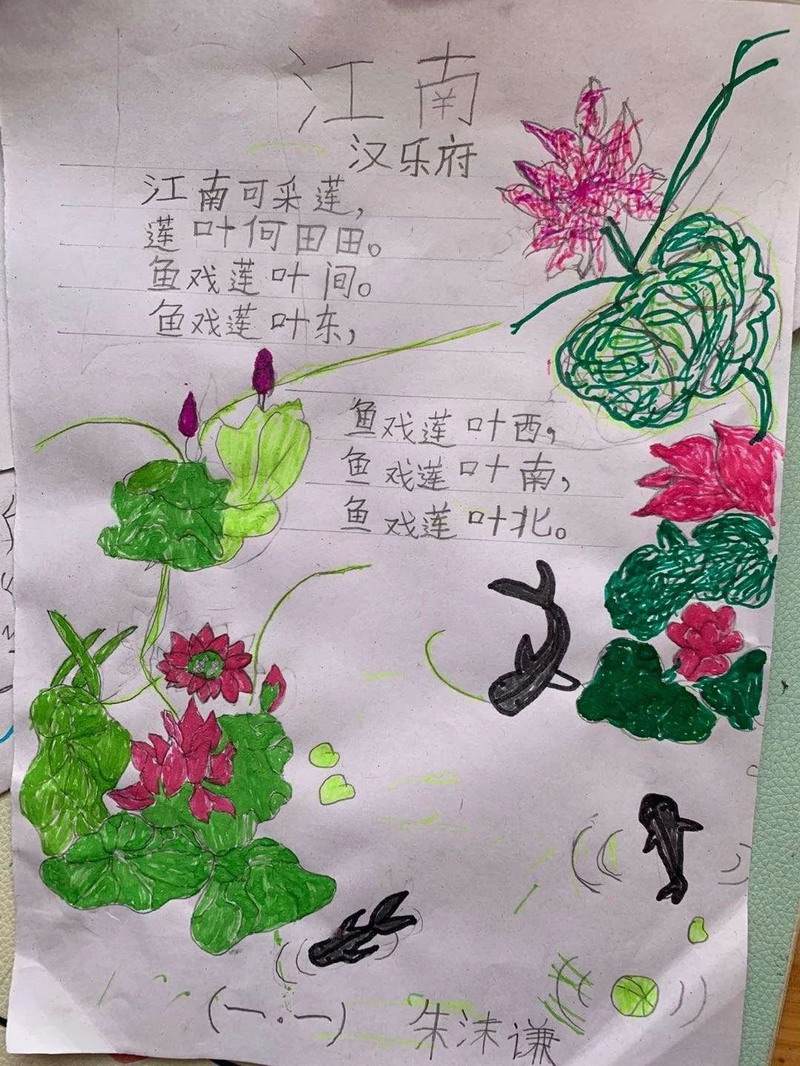 江南
汉乐府
江南可采莲，
莲叶何田田。
鱼戏莲叶间。
鱼戏莲叶东，
鱼戏莲叶西，
鱼戏莲叶南，
鱼戏莲叶北。
（一.一） 朱沫谦